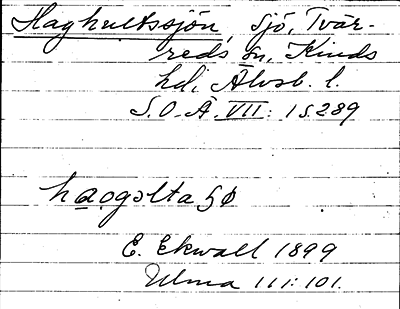 Haghultssjön, sjö, Tvär-
reds sn, Kinds
hd, Älvsb. l.
S.O.Ä. VII: 1 s. 289
E. Ekwall 1899
Ulma 111:101.